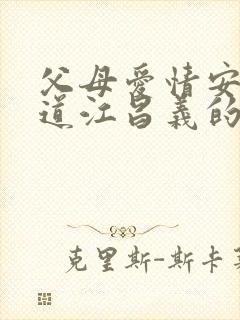 父母爱情安
道江昌義的
克里斯-斯卡